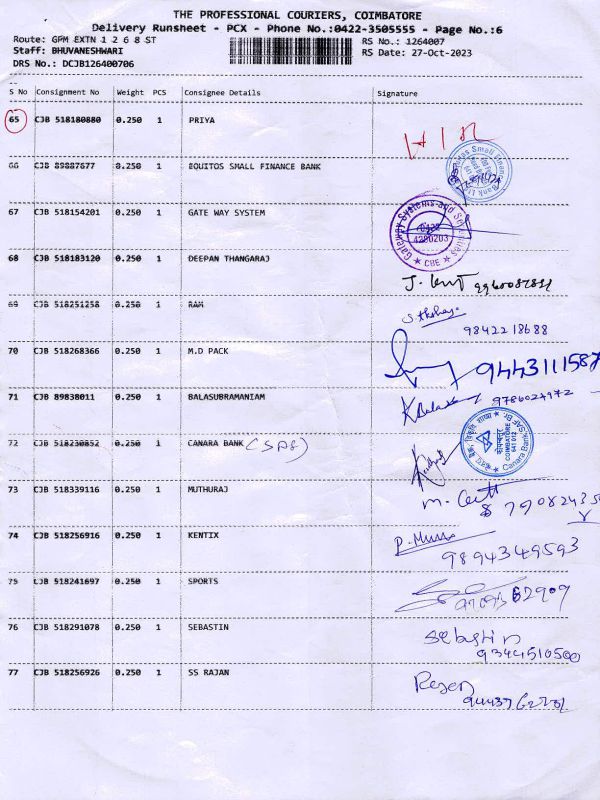 THE PROFESSIONAL COURIERS, COIMBATORE
Delivery Runsheet - PCX - Phone No.:0422-3505555 - Page No.:6
Route: GPM EXTN 1 2 6 8 ST
RS No.: 1264007
Staff: BHUVANESHWARI
RS Date: 27-Oct-2023
DRS No.: DCJB126400706
S No Consignment No Weight PCS Consignee Details Signature
65 CJB 518180880 0.250 1 PRIYA
66 CJB 89887677 0.250 1 EQUITOS SMALL FINANCE BANK
67 CJB 518154201 0.250 1 GATE WAY SYSTEM
Gateway Systems and Securities
0422
4280203
CBE
68 CJB 518183120 0.250 1 DEEPAN THANGARAJ
69 CJB 518251258 0.250 1 RAM
9842218688
70 CJB 518268366 0.250 1 M.D PACK
71 CJB 89838011 0.250 1 BALASUBRAMANIAM
9786024972
72 CJB 518230852 0.250 1 CANARA BANK
COIMBATORE
641 012
73 CJB 518339116 0.250 1 MUTHURAJ
74 CJB 518256916 0.250 1 KENTIX
9894349593
75 CJB 518241697 0.250 1 SPORTS
76 CJB 518291078 0.250 1 SEBASTIN
Sebastin
9344510500
77 CJB 518256926 0.250 1 SS RAJAN